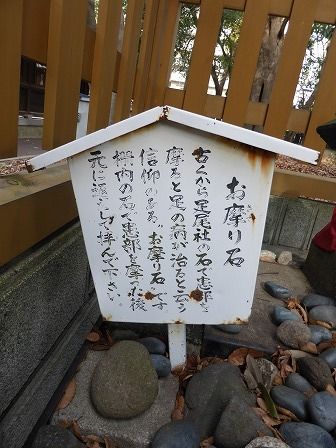 お摩り石
古くから足尾社の石で患部を
摩ると足の病が治ると云う
信仰のある〝お摩り石〟です
柵内の石で患部を摩った後
元に返して拝んで下さい。